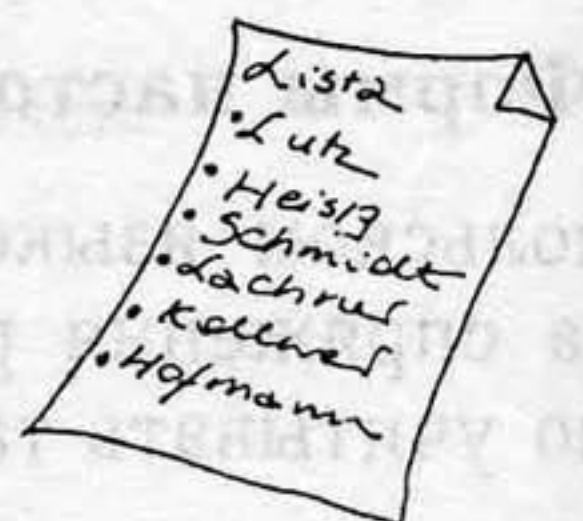 Lista
• Lutz
• Heisß
• Schmidt
• Lachner
• Kellner
• Hofmann